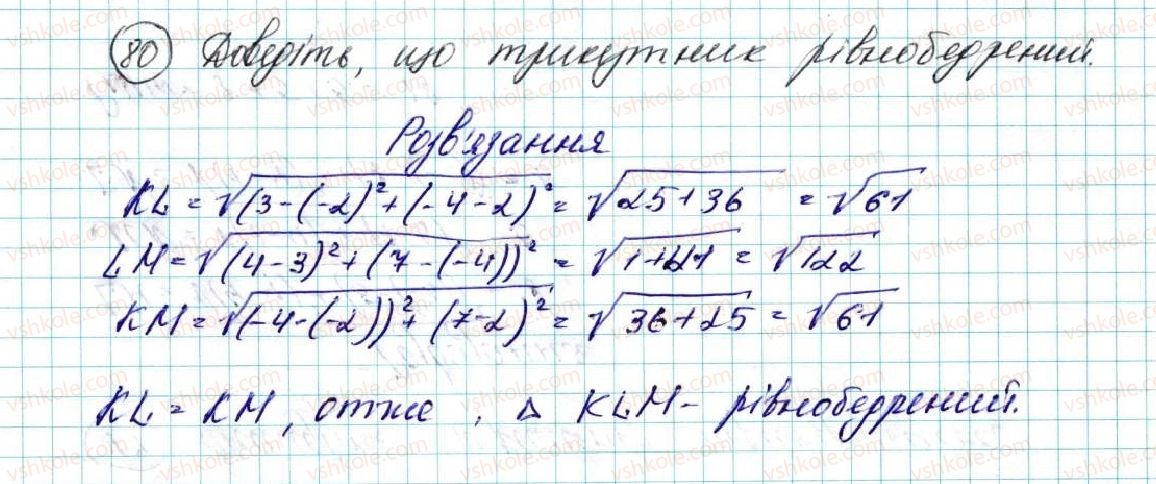 80 Доведіть, що трикутник рівнобедрений.
Розв'язання
KL = √(3-(-2)²+(-4-2)² = √25+36 = √61
LM = √(4-3)²+(7-(-4))² = √1+121 = √122
KM = √(-4-(-2))²+(7-2)² = √36+25 = √61
KL = KM, отже, Δ KLM - рівнобедрений.